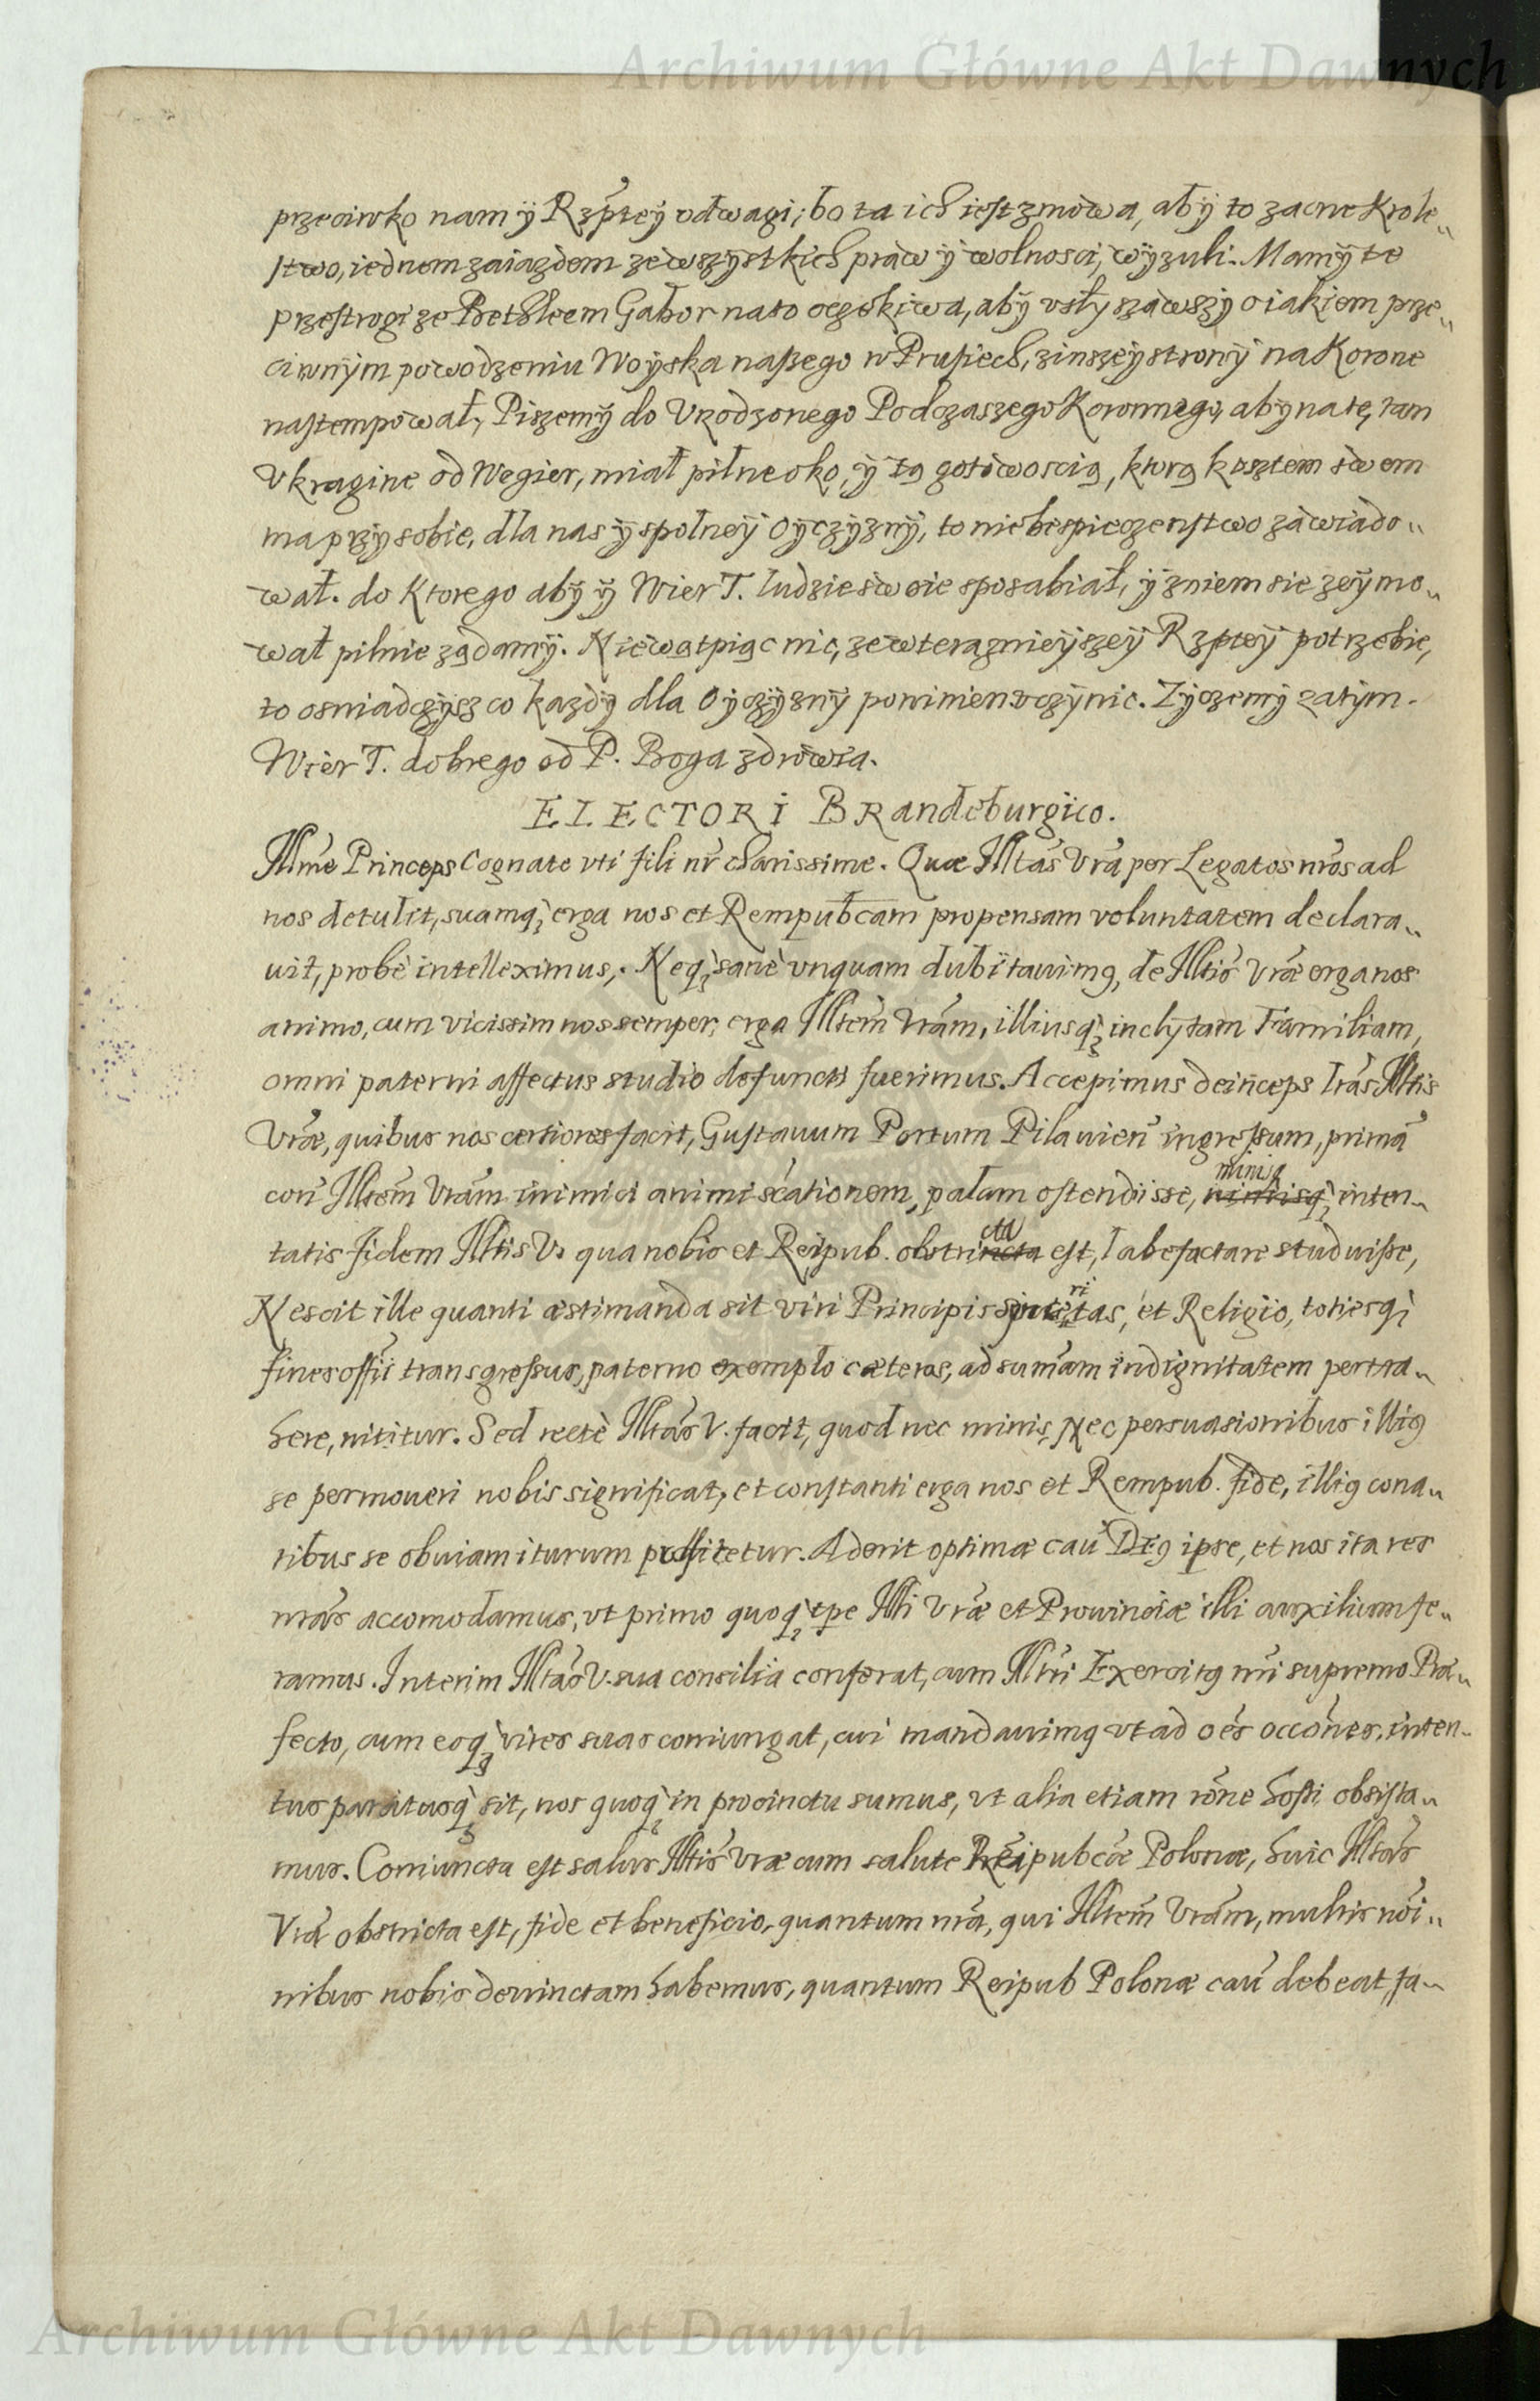 Archiwum Główne Akt Dawnych
przeciwko nam ÿ Rzpteÿ odwagi; bo ta ich iest zmowa, abÿ to zacne Krole„
stwo, iednem zaiazdem ze wszystkich praw ÿ wolnosci, wÿzuli. Mamÿ te
przestrogi ze Bethleem Gabor na to oczekiwa, abÿ vsłyszawszÿ o iakiem prze„
ciwnÿm powodzeniu Woÿska naßego w Prusiech, z inszeÿ stronÿ na Korone
nastempował, Piszemÿ do Vrodzonego Podczaszego Koronnego, aby na te, tam
Vkragine od Wegier, miał pilne oko, ÿ tą gotowoscią, ktorą kosztem swem
ma przy sobie, dla nas ÿ spolneÿ Oÿczÿznÿ, to niebespieczenstwo zawiado„
wał. do Ktorego abÿ ÿ Wier T. ludzie swoie sposabiał, ÿ z niem sie zeÿmo„
wał pilnie ządamÿ. Niewątpiąc nic, ze w teraznieÿszeÿ Rzpteÿ potrzebie,
to oswiadczÿsz co kazdÿ dla Oÿczÿznÿ powinien vczÿnic. Zÿczemÿ zatÿm.
Wier T. dobrego od P. Boga zdrowia.
ELECTORI BRandeburgico.
Illme Princeps Cognate vti fili nr̄ charissime. Quæ Illtas Vrā per Legatos nrōs ad
nos detulit, suamq; erga nos et Rempubcam propensam voluntatem declara„
uit, probè intelleximus,. Neq; sanè vnquam dubitauimg, de Illtis Vræ erga nos
animo, cum vicissim nos semper, erga Illtem Vrām, illiusq; inclÿtam Familiam,
omni paterni affectus studio defuncti fuerimus. Accepimus deinceps lrās Illtis
Vræ, quibus nos certiores facit, Gustauum Portum Pilauien̄ ingressum, primā
con̄ Illtem Vrām inimici animi scātionem, palam ostendisse, minisq; inten„
tatis fidem Illtis V. qua nobis et Reipub. obstricta est, labefactare studuisse,
Nescit ille quanti æstimanda sit viri Principis sinceritas, et Religio, totiesq;
fines offīi transgressus, paterno exemplo cæteros, ad sum̄am indignitatem pertra„
here, nititur. Sed rectè Illtas V. facit, quod nec minis, Nec persuasionibus illig
se permoueri nobis significat, et constanti erga nos et Rempub. fide, illig cona„
tibus se obuiam iturum proffitetur. Aderit optimæ cau͞ Deg ipse, et nos ita res
nrās accomodamus, vt primo quoq; tpe Illti Vræ et Prouinciæ illi auxilium fe„
ramus. Interim Illtas V. sua consilia conferat, cum Illtri Exercitg nri supremo Præ„
fecto, cum eoq; vires suas coniungat, cui mandauimg vt ad oēs occōnes, inten„
tus paratusq; sit, nos quoq; in procinctu sumus, vt alia etiam rōne hosti obsista„
mus. Coniuncta est salus Illtis Vræ cum salute Reipubcæ Polonæ, huic Illtas
Vrā obstricta est, fide et beneficio, quantum nrā, qui Illtem Vrām, multis nōi„
nibus nobis deuinctam habemus, quantum Reipub Polonæ cau͞ debeat, fa„
Archiwum Główne Akt Dawnych